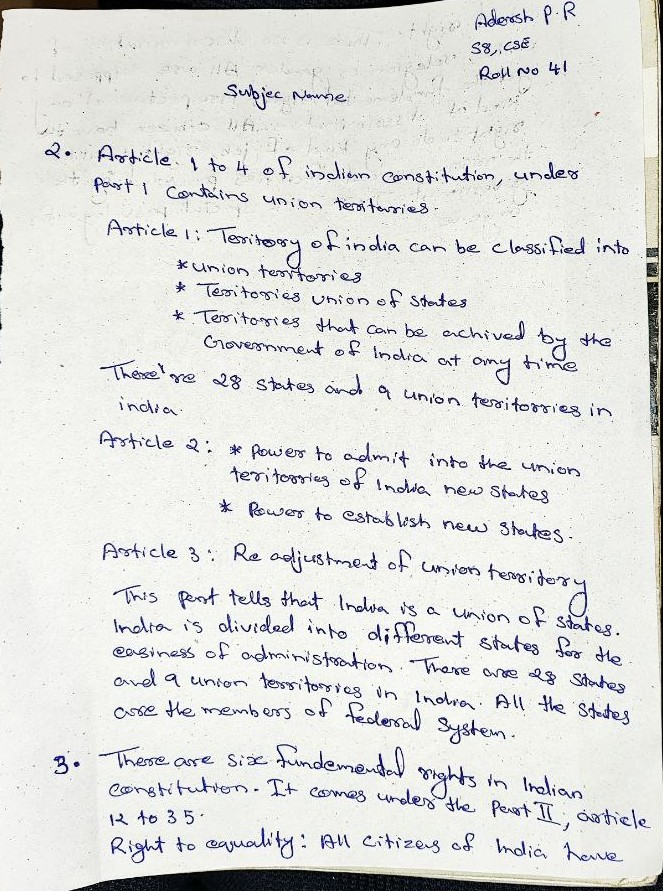 Adersh P.R
S8, CSE
Roll No 41
Subjec Name
2. Article. 1 to 4 of indian constitution, under
Part 1 contains union territories.
Article 1: Teritory of india can be classified into
* union territories
* Teritories union of states
* Teritories that can be achived by the
Government of India at any time
There're 28 states and 9 union teritorries in
india.
Article 2: * power to admit into the union
teritorries of India new states
* Power to establish new states.
Article 3: Re adjustment of union territory
This part tells that India is a union of states.
India is divided into different states for the
easiness of administration. There are 28 states
and 9 union territorries in India. All the states
are the members of federal system.
3. There are six fundemental rights in Indian
constitution. It comes under the Part II, article
12 to 35.
Right to equality: All citizens of India have